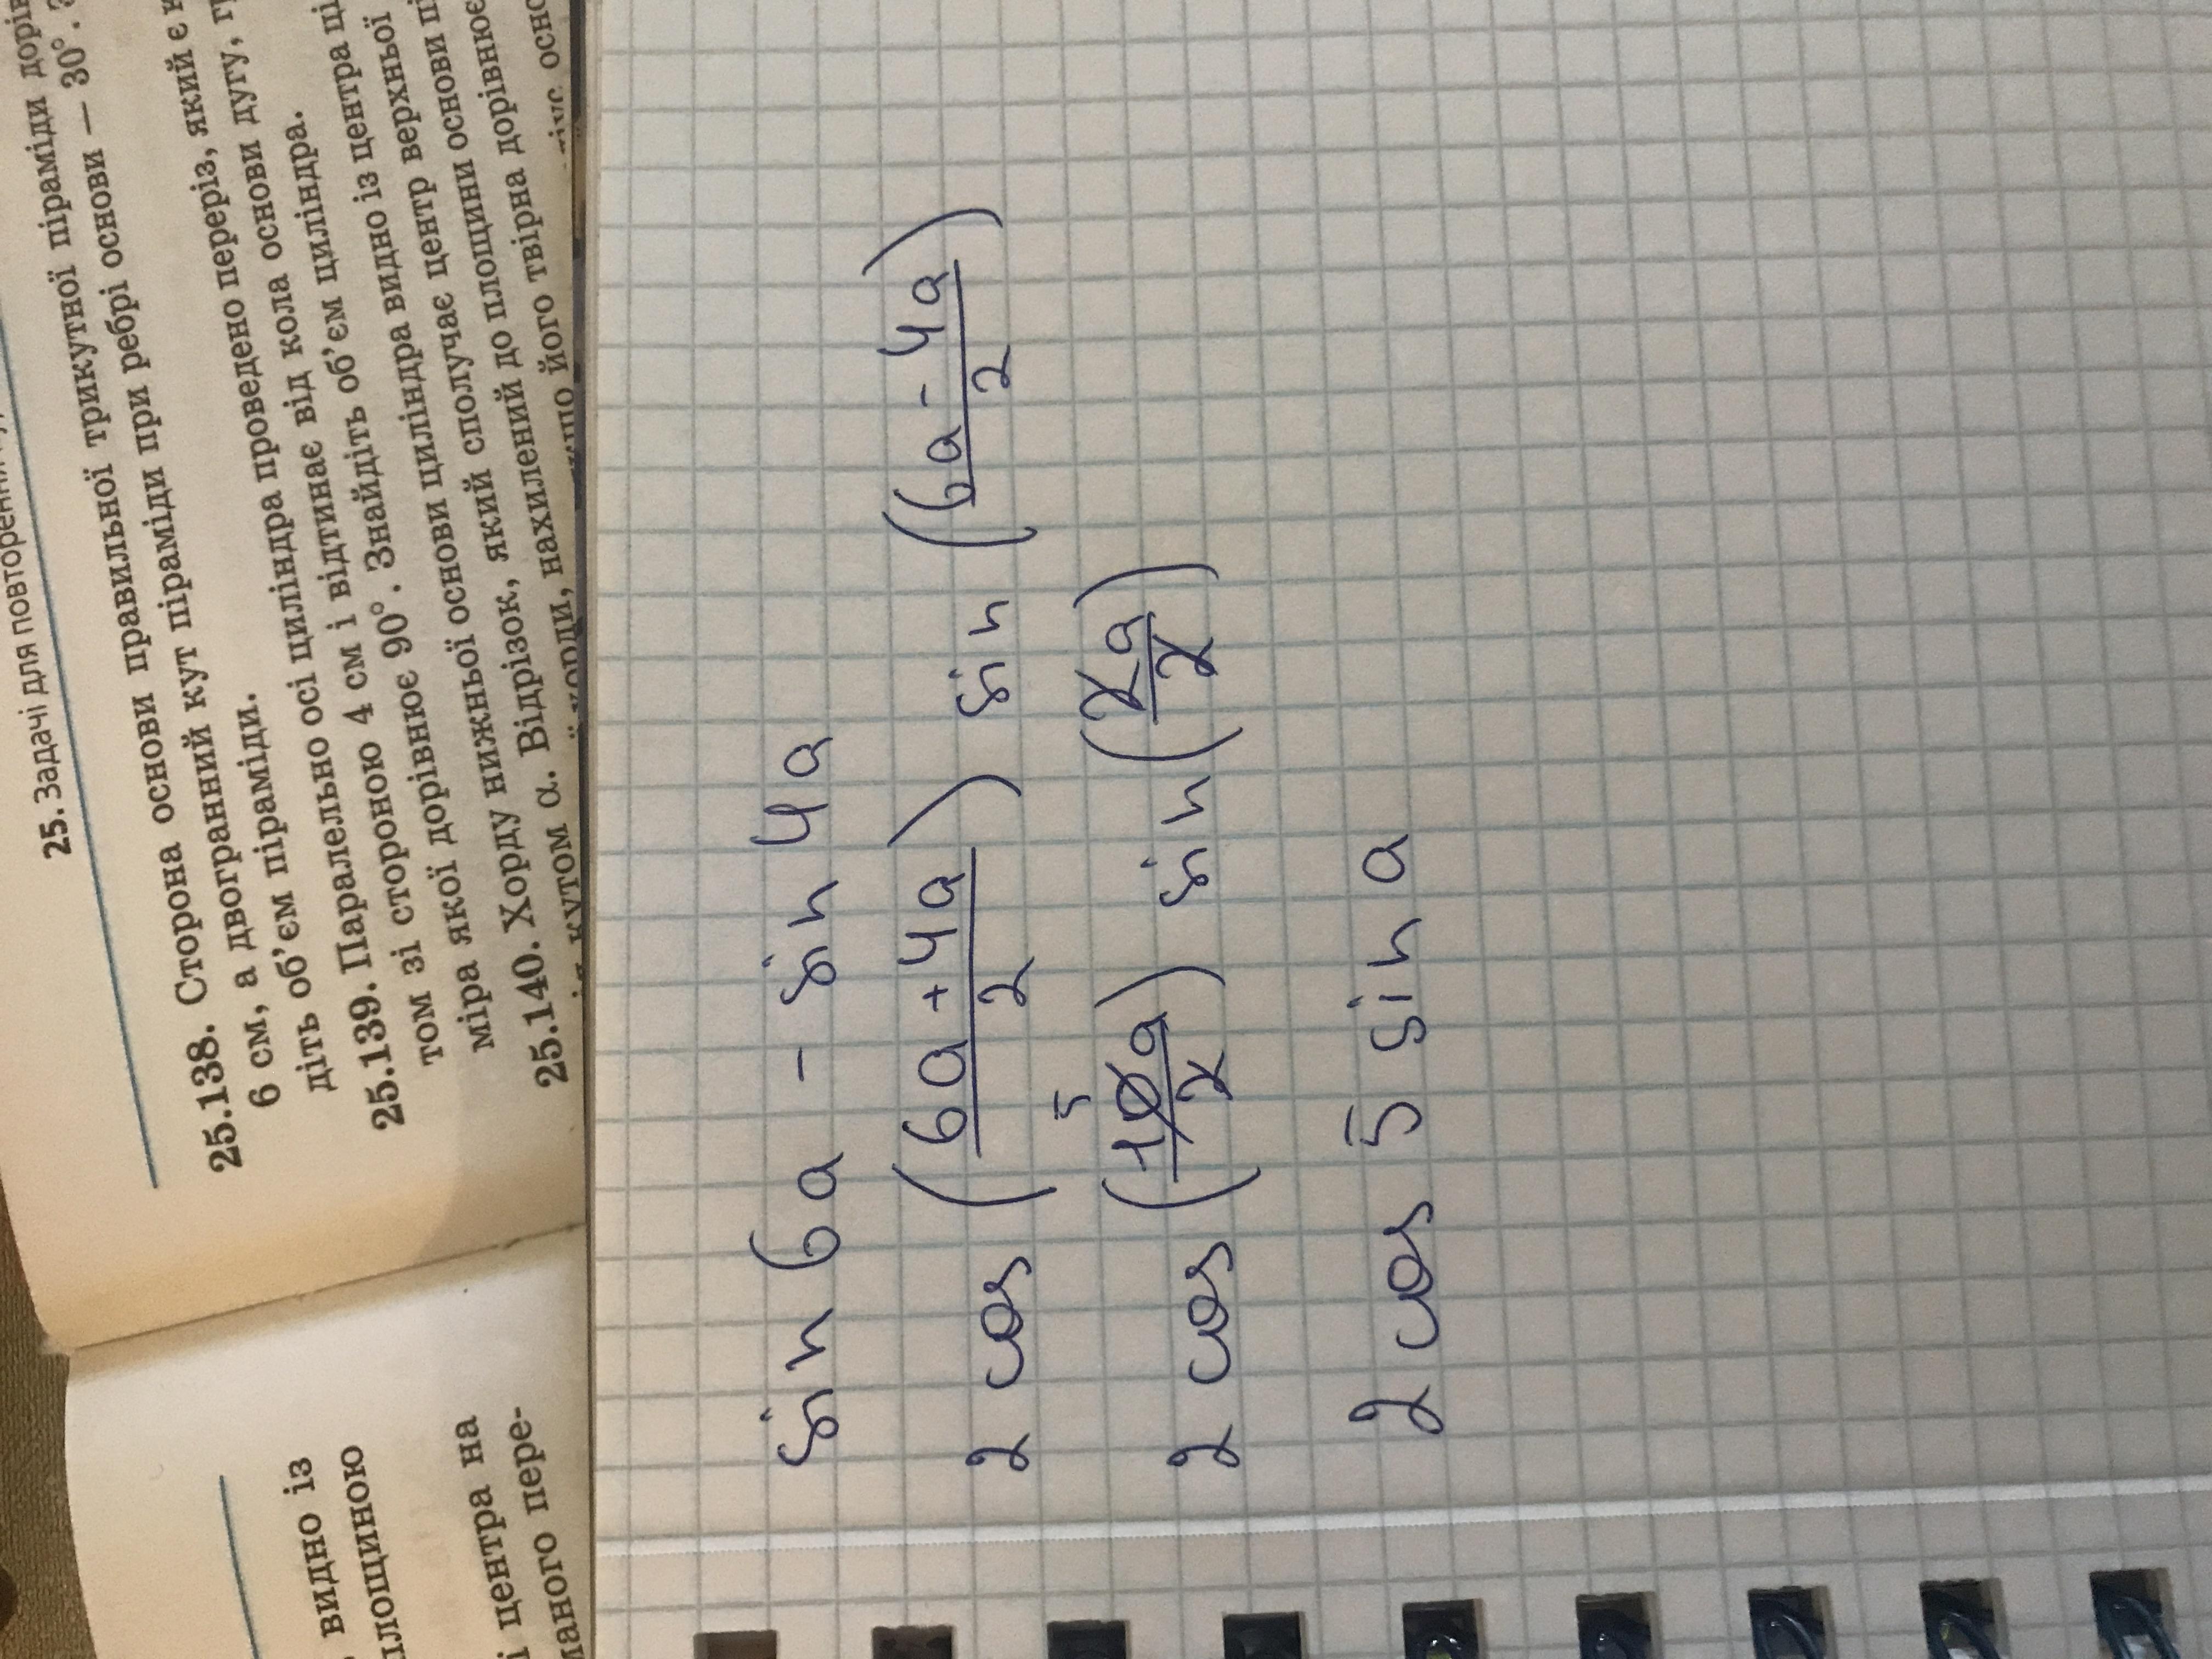 25. Задачі для повторення
25.138. Сторона основи правильної трикутної піраміди
6 см, а двогранний кут піраміди при ребрі основи — 30°.
діть об’єм піраміди.
25.139. Паралельно осі циліндра проведено переріз, який є
том зі стороною 4 см і відтинає від кола основи дугу,
міра якої дорівнює 90°. Знайдіть об’єм циліндра.
25.140. Хорду нижньої основи циліндра видно із центра
кутом α. Відрізок, який сполучає центр верхньої
хорди, нахилений до площини основи
його твірна дорівнює
видно із
площиною
центра на
пере-
sin 6a - sin 4a
2 cos (6a + 4a / 2) sin (6a - 4a / 2)
5
2 cos (10a / 2) sin (2a / 2)
2 cos 5 sin a